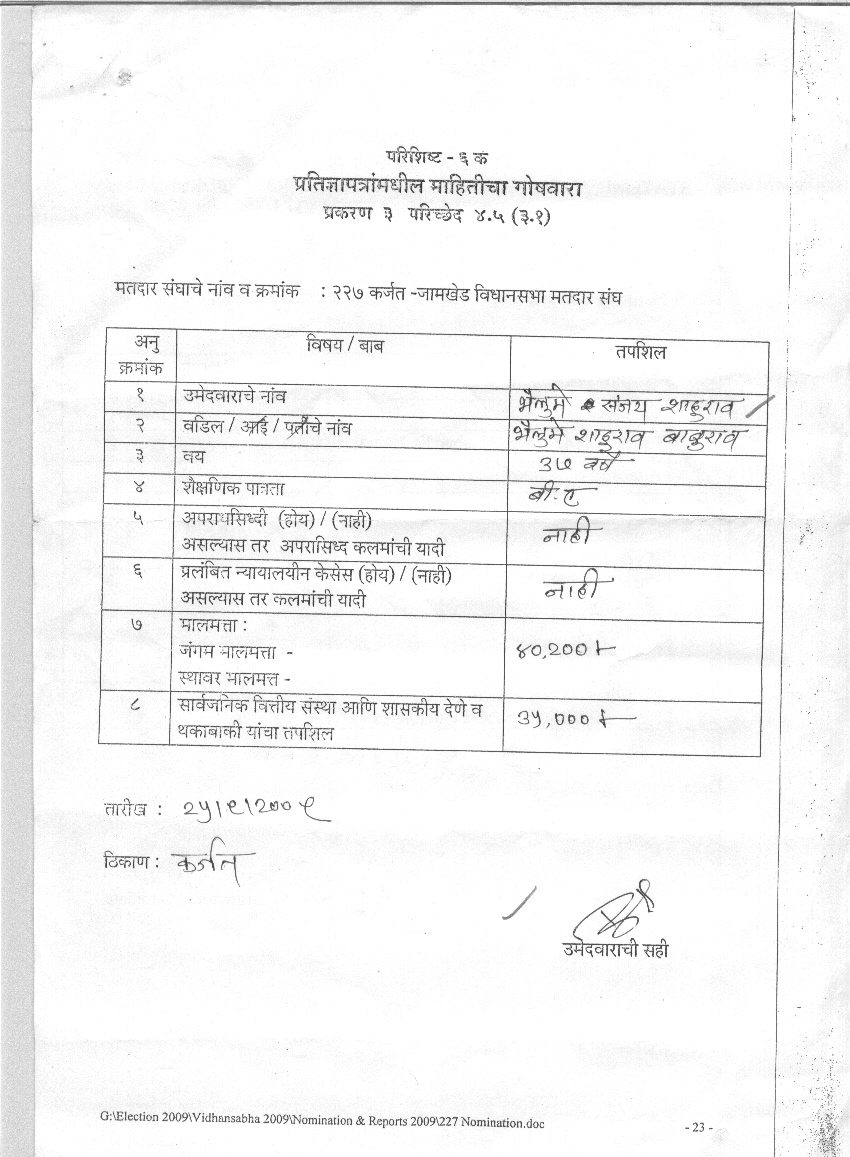 परिशिष्ट - ६ क
प्रतिज्ञापत्रांमधील माहितीचा गोषवारा
प्रकरण ३ परिच्छेद ४.५ (३.१)
मतदार संघाचे नांव व क्रमांक : २२७ कर्जत -जामखेड विधानसभा मतदार संघ
अनु क्रमांक विषय / बाब तपशिल
१ उमेदवाराचे नांव भैलुमे संजय शाहुराव
२ वडिल / आई / पतीचे नांव भैलुमे शाहुराव बाबुराव
३ वय ३७ वर्षे
४ शैक्षणिक पात्रता बी.ए
५ अपराधसिध्दी (होय) / (नाही) नाही
असल्यास तर अपरासिध्द कलमांची यादी
६ प्रलंबित न्यायालयीन केसेस (होय) / (नाही) नाही
असल्यास तर कलमांची यादी
७ मालमत्ता :
जंगम मालमत्ता - ४०,२००
स्थावर मालमत्त -
८ सार्वजनिक वित्तीय संस्था आणि शासकीय देणे व ३५,०००
थकाबाकी यांचा तपशिल
तारीख : २५/९/२००९
ठिकाण : कर्जत
उमेदवाराची सही
G:\Election 2009\Vidhansabha 2009\Nomination & Reports 2009\227 Nomination.doc - 23 -